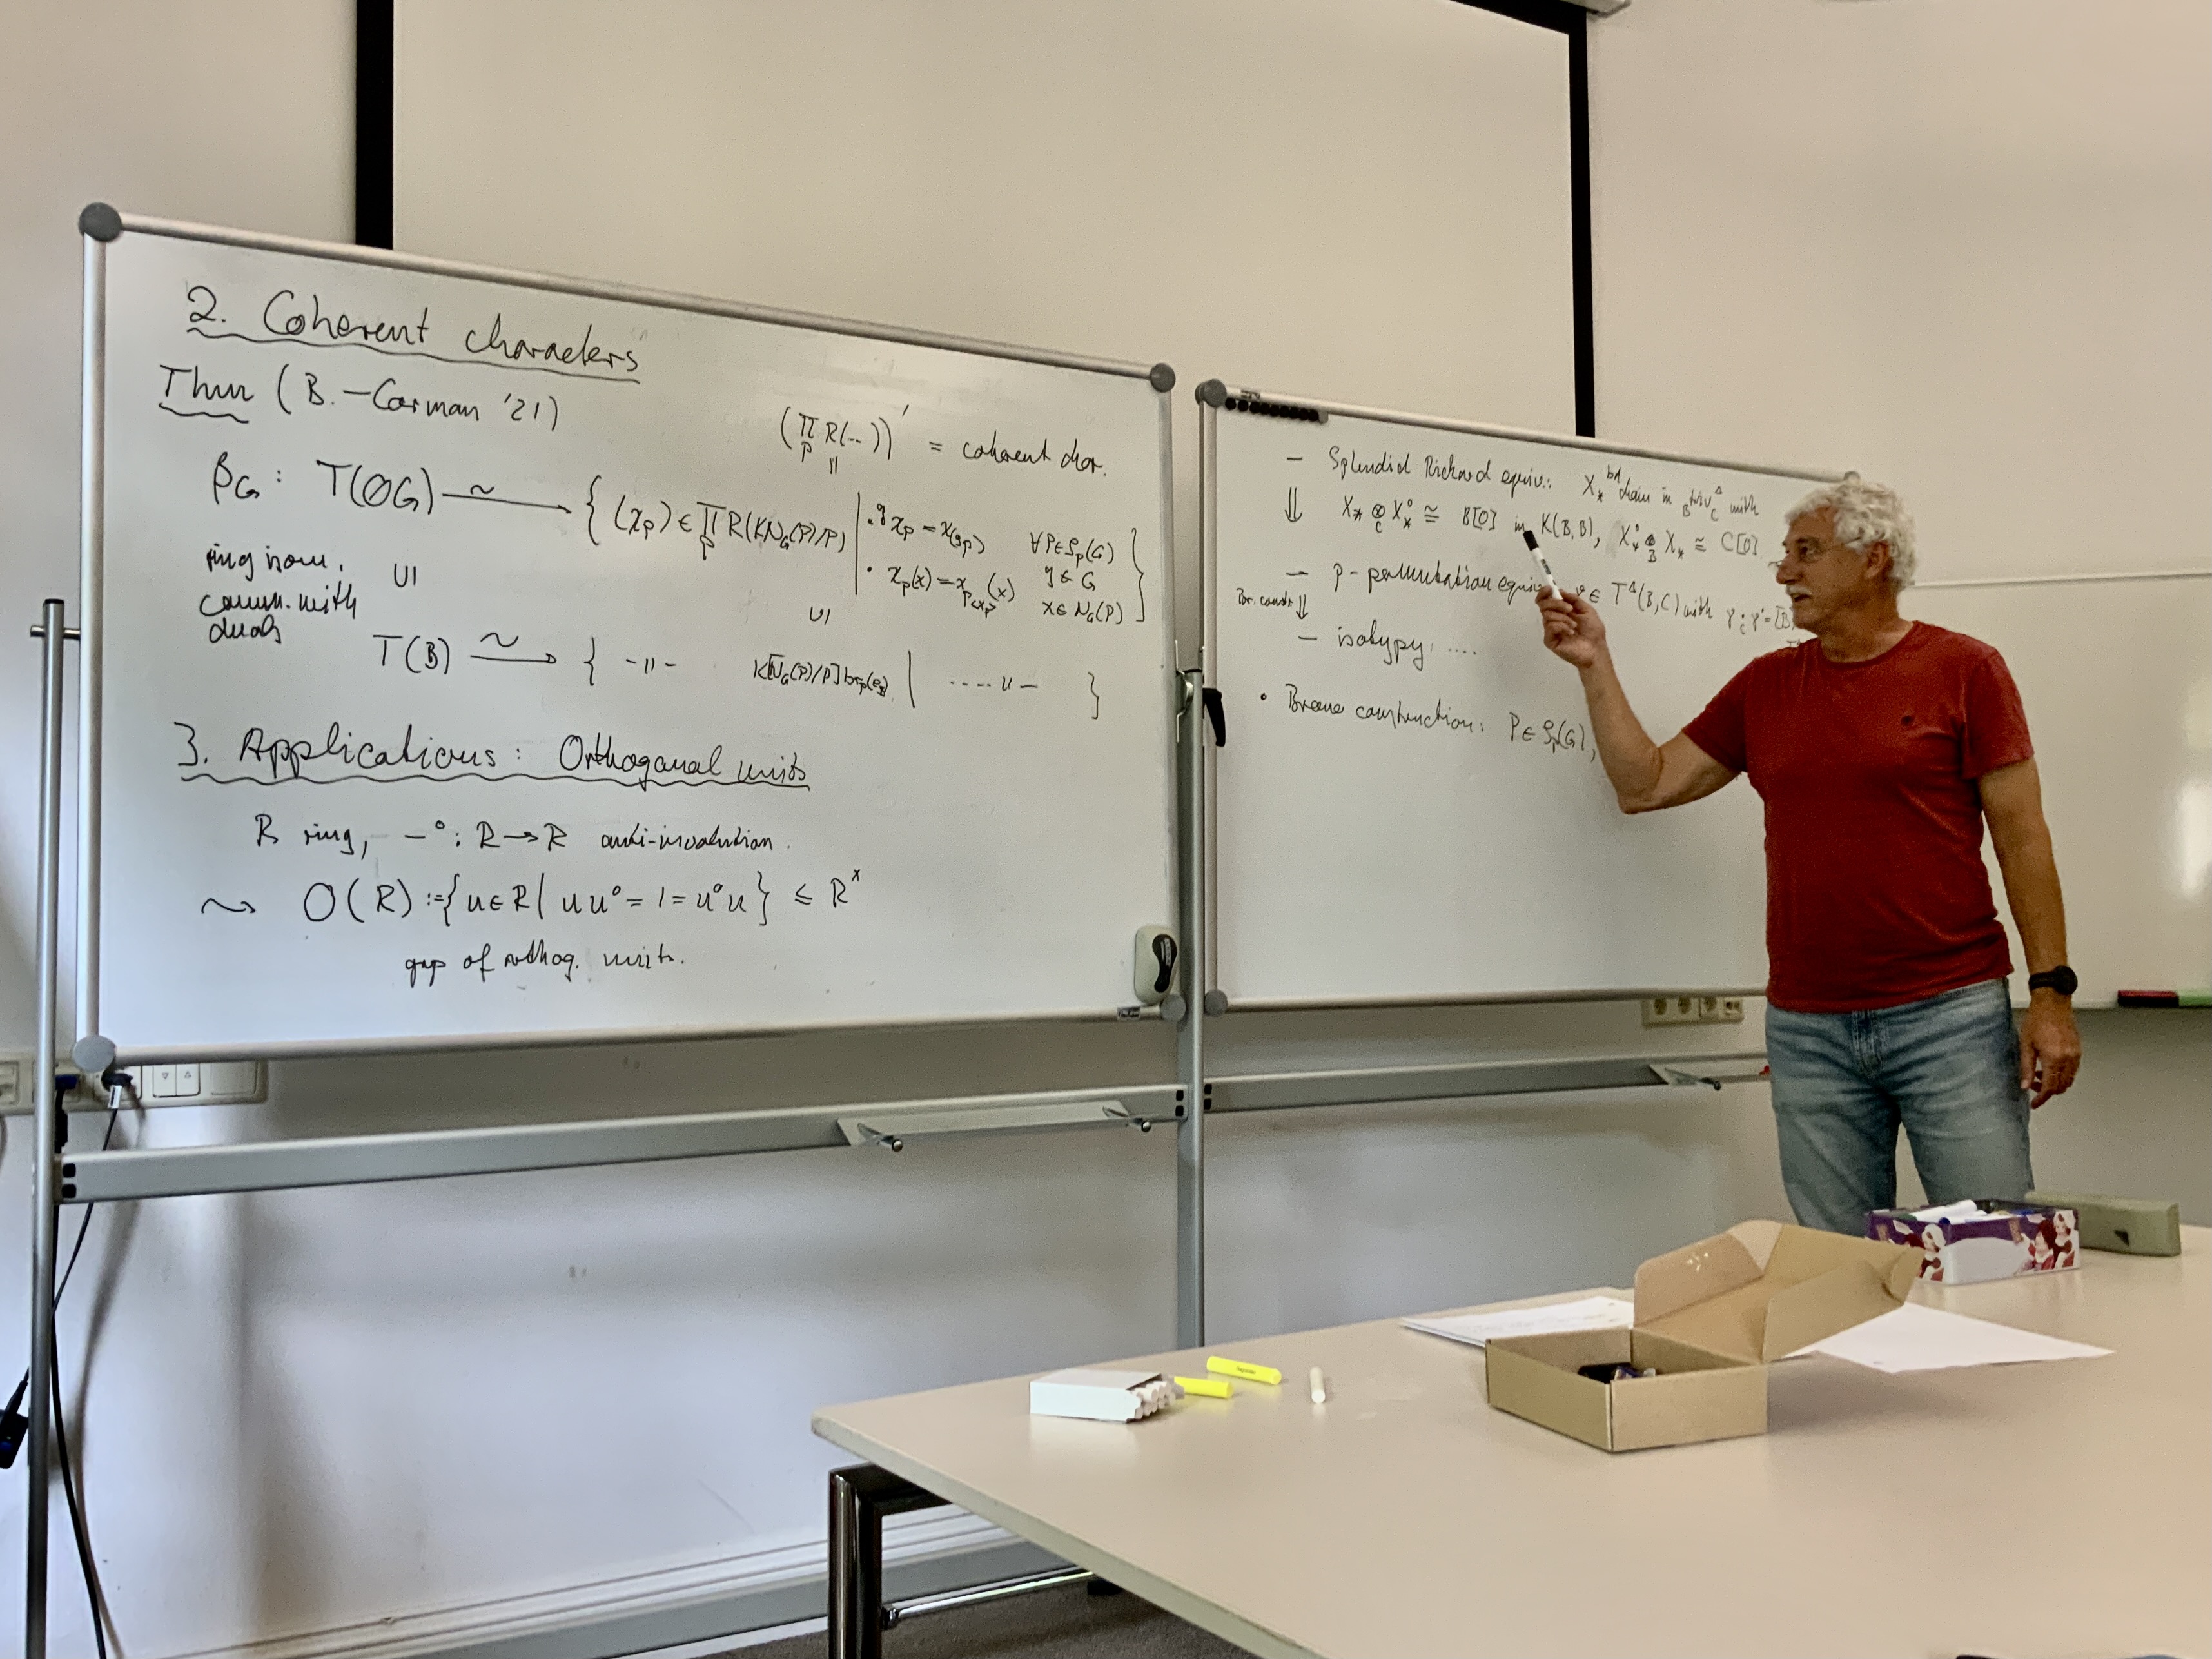 2. Coherent characters
Thm (B.-Carman '21)
(∏_P R(--))' = coherent char.
β_G : T(OG) ~→ { (χ_P) ∈ ∏_P R(KN_G(P)/P) | · ^gχ_P = χ_(^gP) ∀P∈S_p(G)
· χ_P(x) = χ_{P<x_p>}(x) g∈G
x∈N_G(P) }
ring isom.
comm. with
duals
UI
UI
T(B) ~→ { -"- K[N_G(P)/P]br_P(e_B) | ....."- }
3. Applications: Orthogonal units
R ring, -° : R → R anti-involution.
⇝ O(R) := {u∈R | uu° = 1 = u°u} ≤ R^×
grp of orthog. units.
- Splendid Rickard equiv.: X_* bd chain in _B triv^Δ_C with
⇓ X_* ⊗_C X_*° ≅ B[0] in K(B,B), X_*° ⊗_B X_* ≅ C[0]
- p-permutation equiv γ ∈ T^Δ(B,C) with γ ·_C γ° = [B]
Br. constr ⇓
- isotypy: ....
· Brauer construction: P∈S_p(G),